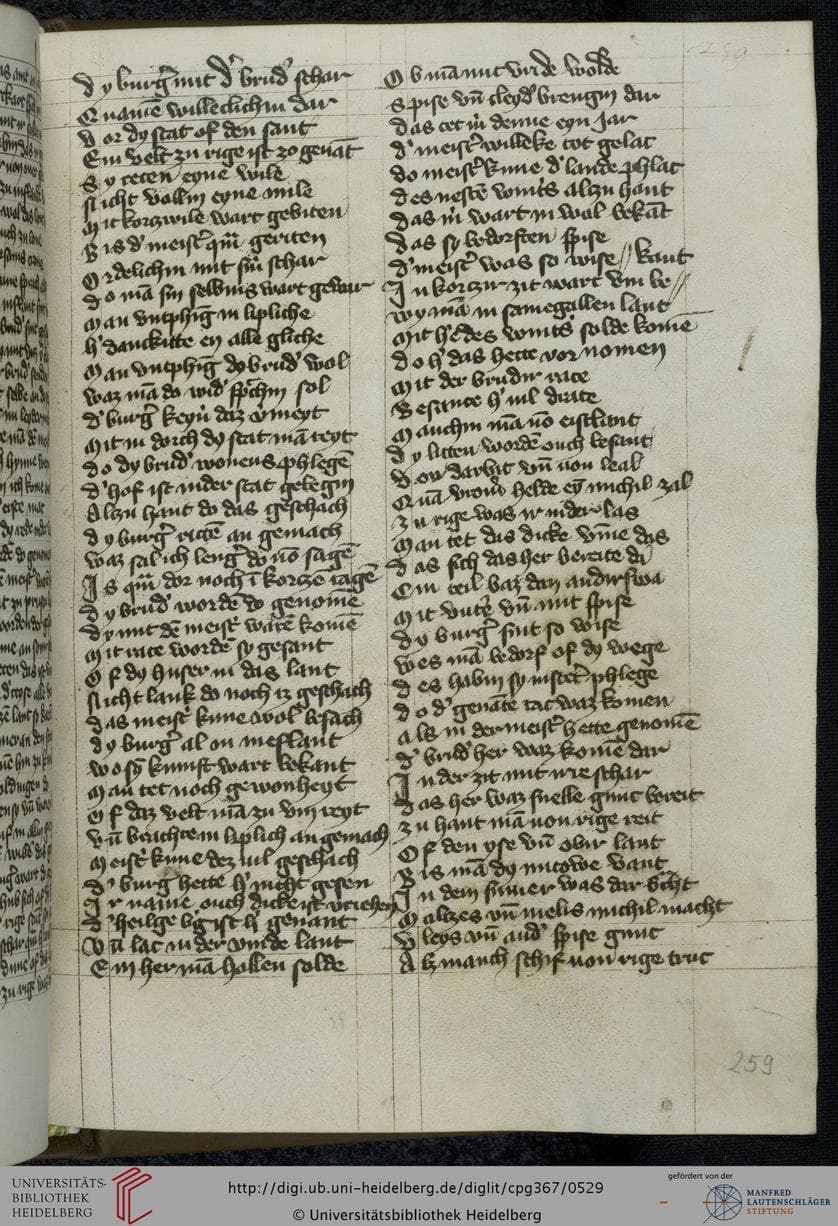 dy burg᷑ mit d᷑ brud᷑ schar
Quamē willeclichin dar
Vor dy stat of den sant
Ein velt zu rige ist zo genāt
Sy teten eyne wile
Nicht vollin eyne mile
Mit korzwile wart gebiten
Bis d᷑ meist᷑ qm̄ geriten
Ordelichin mit sin᷑ schar
do mā sin selbins wart gewar
Man vntphig in lipliche
h᷑ danckitte en alle gliche
Man vntphig dy brud᷑ wol
waz mā do wid᷑ sprechin sol
d᷑ burg᷑ keyn᷑ daz v᷑meyt
Mit in dorch dy stat mā reyt
do dy brud᷑ wonens phlegē
d᷑ hof ist in der stat gelegin
Alzu hant do das geschach
dy burg᷑ ritē an gemach
waz sal ich leng᷑ do vō sagē
Is qm̄ dor noch ī kortzē tagē
dy brud᷑ wordē do genomē
dy mit dē meist᷑ warē komē
Mit rate wordē sy gesant
Of dy huser in das lant
Nicht lank do noch iz geschach
das meist᷑ kune wol besach
dy burg᷑ al on nieflant
wo sȳ kunft wart bekant
Man tet noch gewonheyt
Of daz velt mā zu vm reyt
vn̄ brachte in liplich an gemach
Meist᷑ kune dez vil geschach
d᷑ burg᷑ hette h᷑ nicht gesen
Ir name ouch dicke ist vriehen
d᷑ heilge b᷑g ist h᷑ genant
Vn̄ lac in der vinde lant
Ein her mā hollen solde
Ob mā mit vride wolde
Spise vn̄ cleyd᷑ brengin dar
das tet in᷑ denne eyn Jar
d᷑ meist᷑ willeke tot gelac
do meist᷑ kune d᷑ lande phlac
des nestē vint᷑s alzu hant
das in᷑ wart in wol bekāt
das sy bedorften spise
d᷑ meist᷑ was so wise // kant
In kortzir zit wart vm be //
wy mā in samegallen lant
Mit h᷑ des vint᷑s solde komē
do h᷑ das hette vor nomen
Mit der brudir rate
Besante h᷑ vil drate
Manchin mā vō eistlant
dy litten wordē ouch besant
Von darbit vn̄ von leal
Quā vrom᷑ helde eȳ michil zal
Zu rige was ir nider las
Man tet das dicke vm̄e das
das sich das her bereite da
Ein teil baz dan andirswa
Mit vut᷑e vn̄ mit spise
dy burg᷑ sint so wise
wes mā bedorf of dy wege
des habin sy in stet᷑ phlege
do d᷑ genāte tac waz komen
Als in der meist᷑ hette genomē
d᷑ brud᷑ her waz komē dar
In der zit mit irre schar
das her waz snelle gnuc bereit
Zu hant mā von rige reit
Of den yse vn̄ obir lant
Bis mā dy mitowe vant
In dem sum᷑er was dar b᷑cht
Maltzes vn̄ melis michil macht
Vleys vn̄ and᷑ spise gnuc
Alz manch schif von rige truc
259
UNIVERSITÄTS-
BIBLIOTHEK
HEIDELBERG
http://digi.ub.uni-heidelberg.de/diglit/cpg367/0529
© Universitätsbibliothek Heidelberg
gefördert von der
MANFRED
LAUTENSCHLÄGER
STIFTUNG